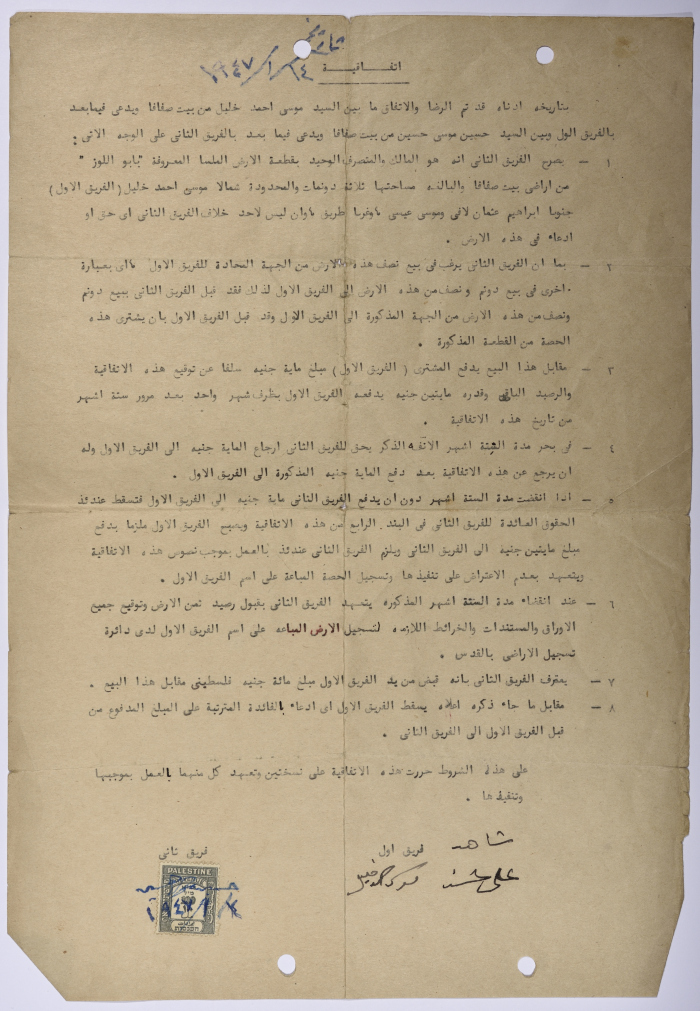 تاريخ
١٤/١/١٩٤٧
اتفاقية
بتاريخه ادناه قد تم الرضا والاتفاق ما بين السيد موسى احمد خليل من بيت صفافا ويدعى فيمابعد
بالفريق الول وبين السيد حسين موسى حسين من بيت صفافا ويدعى فيما بعد بالفريق الثاني على الوجه الاتي :
١ – يصرح الفريق الثاني انه هو المالك والمتصرف الوحيد بقطعة الارض الملسا المعروفة "بابو اللوز "
من اراضي بيت صفافا والبالغه مساحتها ثلاثة دونمات والمحدودة شمالا موسى احمد خليل (الفريق الاول)
جنوبا ابراهيم عثمان لافي وموسى عيسى وغربا طريق وان ليس لاحد خلاف الفريق الثاني اى حق او
ادعاء في هذه الارض .
٢ – بما ان الفريق الثاني يرغب في بيع نصف هذه الارض من الجهة المحادة للفريق الاول اى بعبارة
اخرى في بيع دونم و نصف من هذه الارض الى الفريق الاول لذلك فقد قبل الفريق الثاني ببيع دونم
ونصف من هذه الارض من الجهة المذكورة الى الفريق الاول وقد قبل الفريق الاول بان يشترى هذه
الحصة من القطعة المذكورة .
٣ – مقابل هذا البيع يدفع المشترى ( الفريق الاول ) مبلغ ماية جنيه سلفا عن توقيع هذه الاتفاقية
والرصيد الباقي وقدره مايتين جنيه يدفعه الفريق الاول بظرف شهر واحد بعد مرور ستة اشهر
من تاريخ هذه الاتفاقية .
٤ – في بحر مدة الستة اشهر الانفه الذكر يحق للفريق الثاني ارجاع الماية جنيه الى الفريق الاول وله
ان يرجع عن هذه الاتفاقية بعد دفع الماية جنيه المذكورة الى الفريق الاول .
٥ – اذا انقضت مدة الستة اشهر دون ان يدفع الفريق الثاني ماية جنيه الى الفريق الاول فتسقط عندئذ
الحقوق العائدة للفريق الثاني في البند الرابع من هذه الاتفاقية ويصبح الفريق الاول ملزما بدفع
مبلغ مايتين جنيه الى الفريق الثاني ويلزم الفريق الثاني عندئذ بالعمل بموجب نصوص هذه الاتفاقية
ويتعهد بعدم الاعتراض على تنفيذها وتسجيل الحصة المباعة على اسم الفريق الاول .
٦ – عند انقضاء مدة الستة اشهر المذكوره يتعهد الفريق الثاني بقبول رصيد ثمن الارض وتوقيع جميع
الاوراق والمستندات والخرائط اللازمه لتسجيل الارض المباعه على اسم الفريق الاول لدى دائرة
تسجيل الاراضي بالقدس .
٧ – يعترف الفريق الثاني بانه قبض من يد الفريق الاول مبلغ مائة جنيه فلسطيني مقابل هذا البيع .
٨ – مقابل ما جاء ذكره اعلاه يسقط الفريق الاول اى ادعاء بالفائدة المترتبة على المبلغ المدفوع من
قبل الفريق الاول الى الفريق الثاني .
على هذه الشروط حررت هذه الاتفاقية على نسختين وتعهد كل منهما بالعمل بموجبها
وتنفيذها .
شاهد فريق اول فريق ثاني
PALESTINE